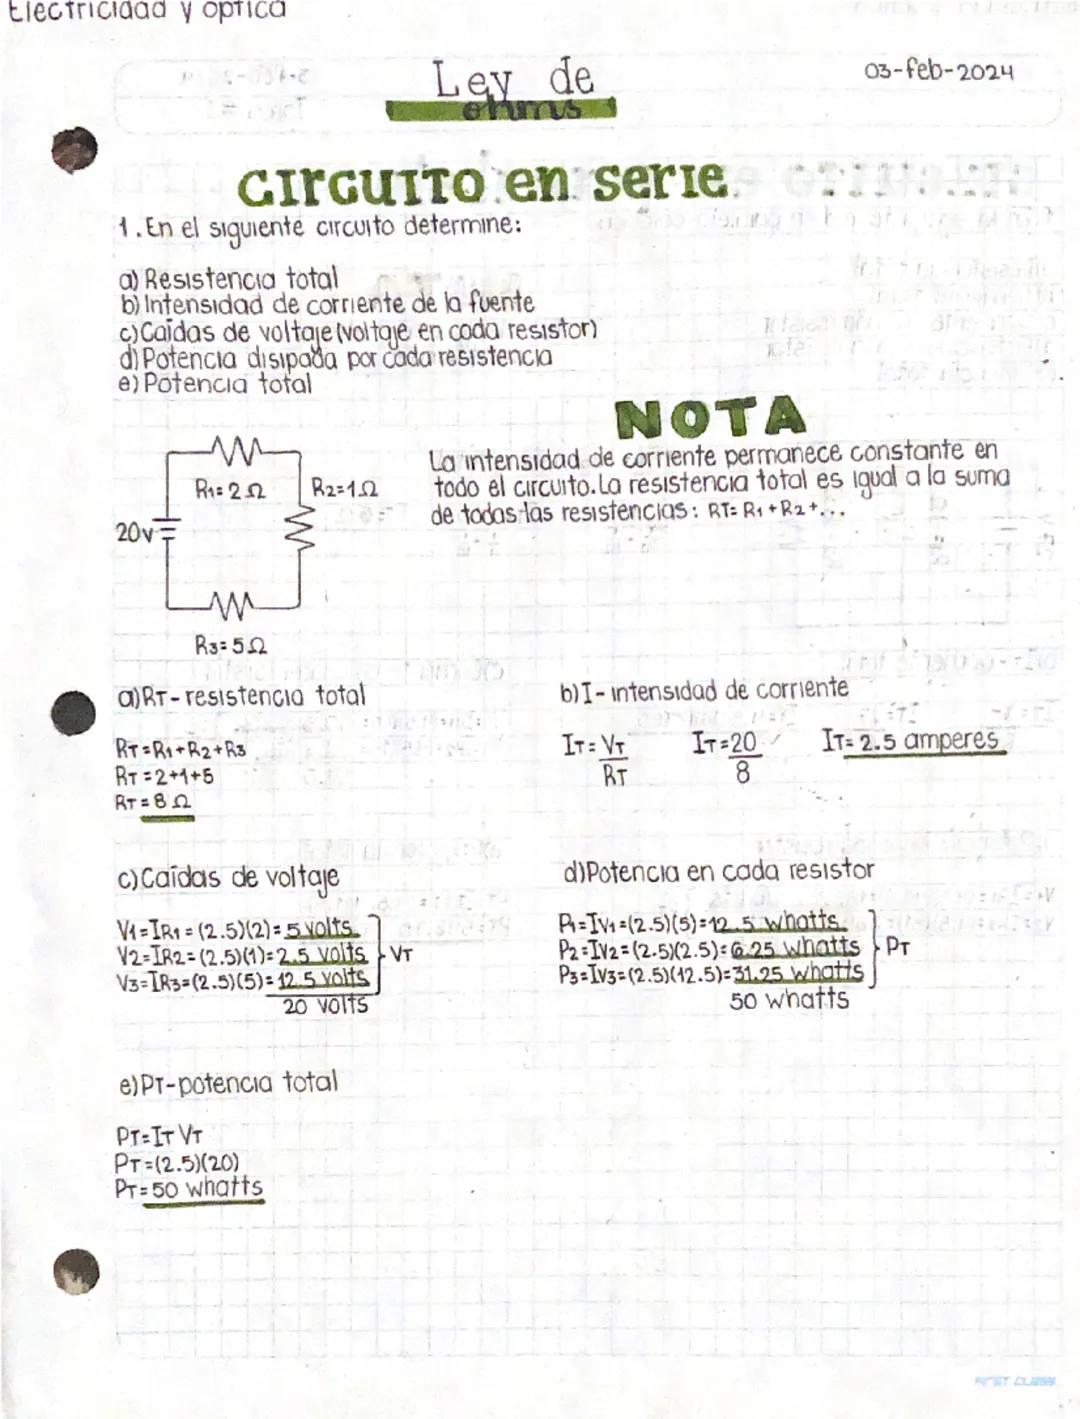 Electricidad y optica
Ley de
ohms
03-feb-2024
CIRCUITO en serie
1. En el siguiente circuito determine:
a) Resistencia total
b) Intensidad de corriente de la fuente
c) Caídas de voltaje (voltaje en cada resistor)
d) Potencia disipada por cada resistencia
e) Potencia total
NOTA
La intensidad de corriente permanece constante en
todo el circuito. La resistencia total es igual a la suma
de todas las resistencias: RT= R1+R2+...
R1= 2Ω
R2=1Ω
20v
R3= 5Ω
a) RT- resistencia total
RT=R1+R2+R3
RT=2+1+5
RT= 8 Ω
b) I- intensidad de corriente
IT= VT/RT IT=20/8 IT= 2.5 amperes
c) Caídas de voltaje
V1=IR1=(2.5)(2)= 5 volts
V2=IR2=(2.5)(1)=2.5 volts VT
V3=IR3=(2.5)(5)=12.5 volts
20 volts
d) Potencia en cada resistor
P1=IV1=(2.5)(5)=12.5 whatts
P2=IV2=(2.5)(2.5)=6.25 whatts PT
P3=IV3=(2.5)(12.5)=31.25 whatts
50 whatts
e) PT-potencia total
PT=IT VT
PT=(2.5)(20)
PT= 50 whatts
FIRST CLASS